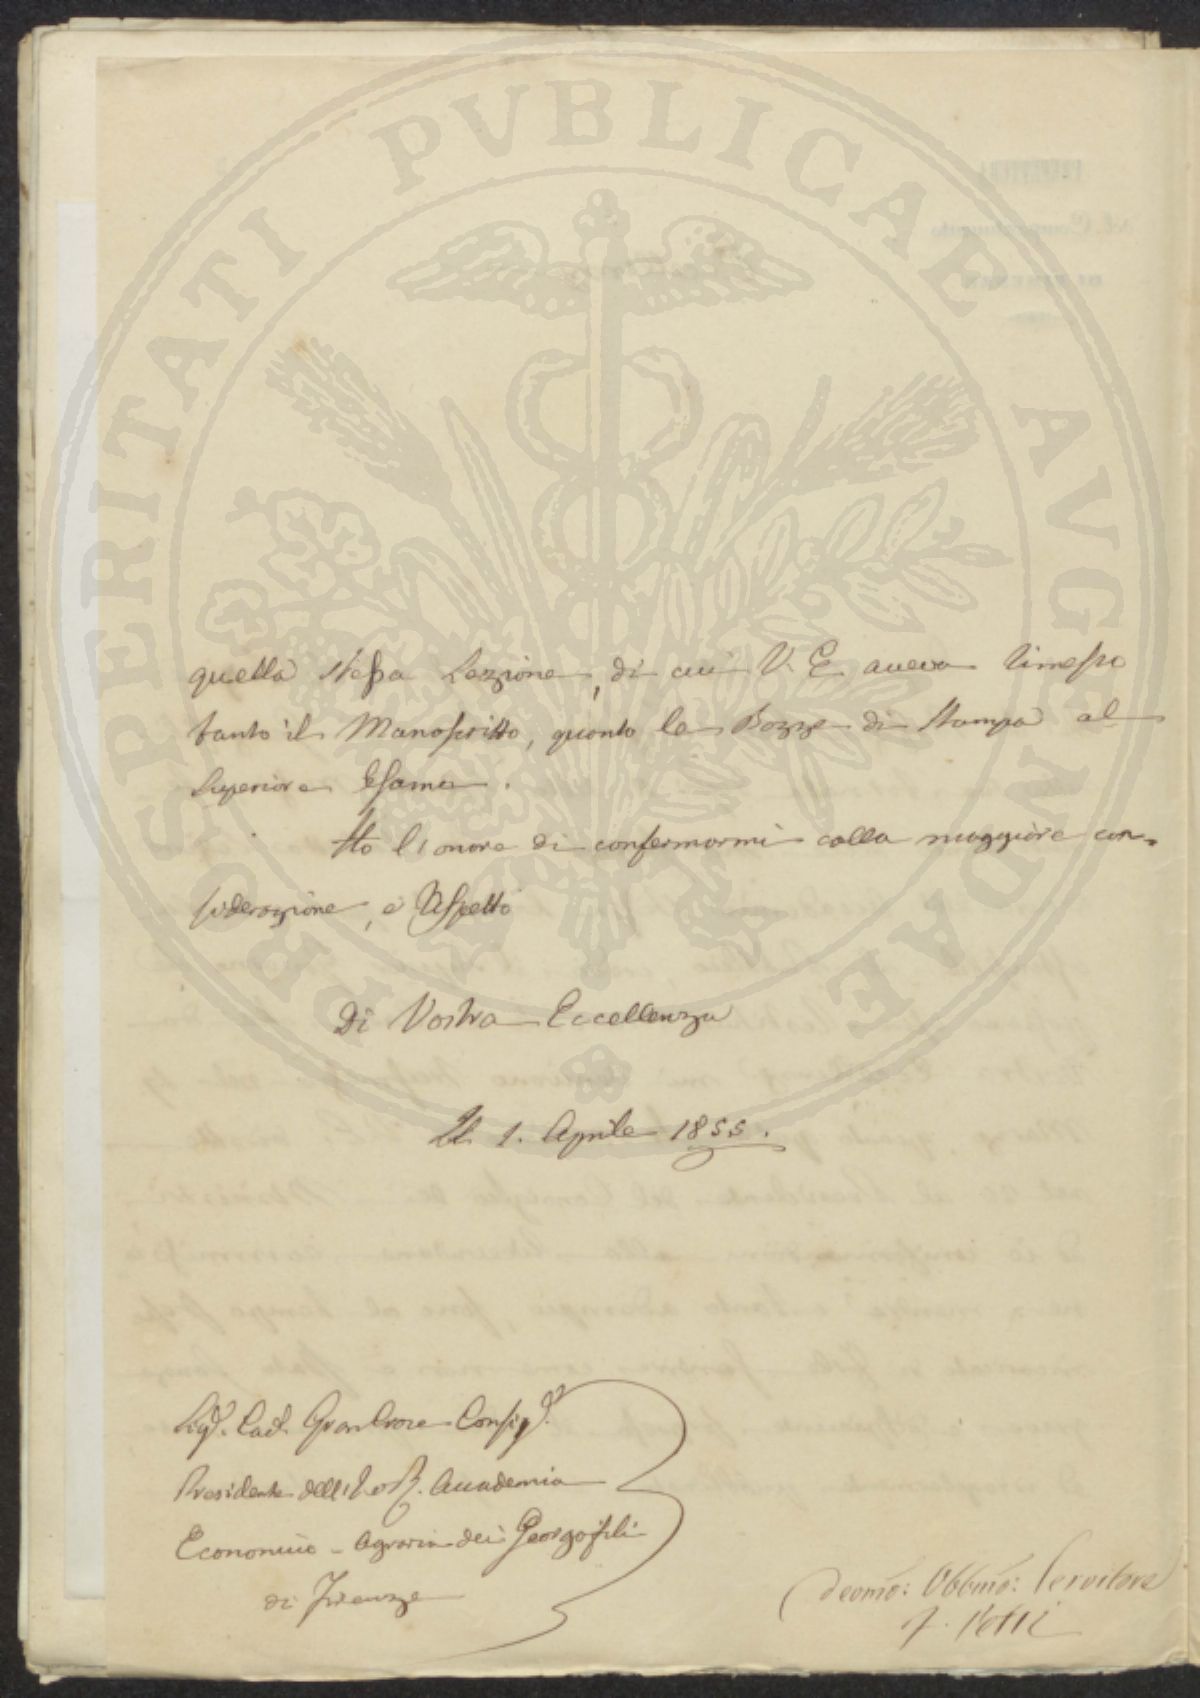 PROSPERITATI PVBLICAE AVGENDAE
quella stessa Lezione, di cui V. E. aveva rimesso
tanto il Manoscritto, quanto le Bozze di Stampa al
Superiore Esame.
Ho l'onore di confermarmi colla maggiore con-
siderazione, e rispetto
Di Vostra Eccellenza
Li 1. Aprile 1855.
Sigr. Cav. Gran Croce Consigr.
Presidente dell'I. e R. Accademia
Economico-Agraria dei Georgofili
di Firenze
Devmo: Obbmo: Servitore